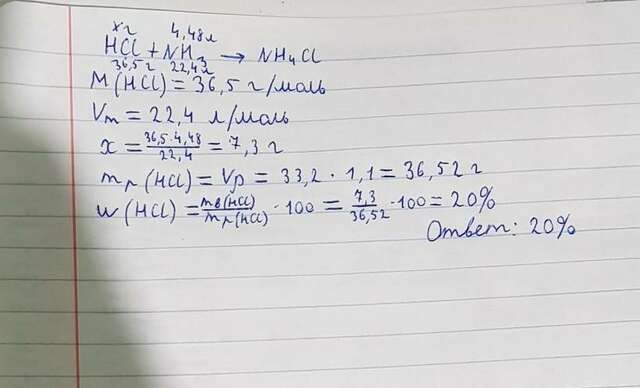 x г 4,48 л
HCl + NH₃ → NH₄Cl
36,5 г 22,4 л
M(HCl) = 36,5 г/моль
Vm = 22,4 л/моль
x = 36,5·4,48/22,4 = 7,3 г
mр(HCl) = Vρ = 33,2 · 1,1 = 36,52 г
w(HCl) = mв(HCl)/mр(HCl) · 100 = 7,3/36,52 · 100 = 20%
Ответ: 20%